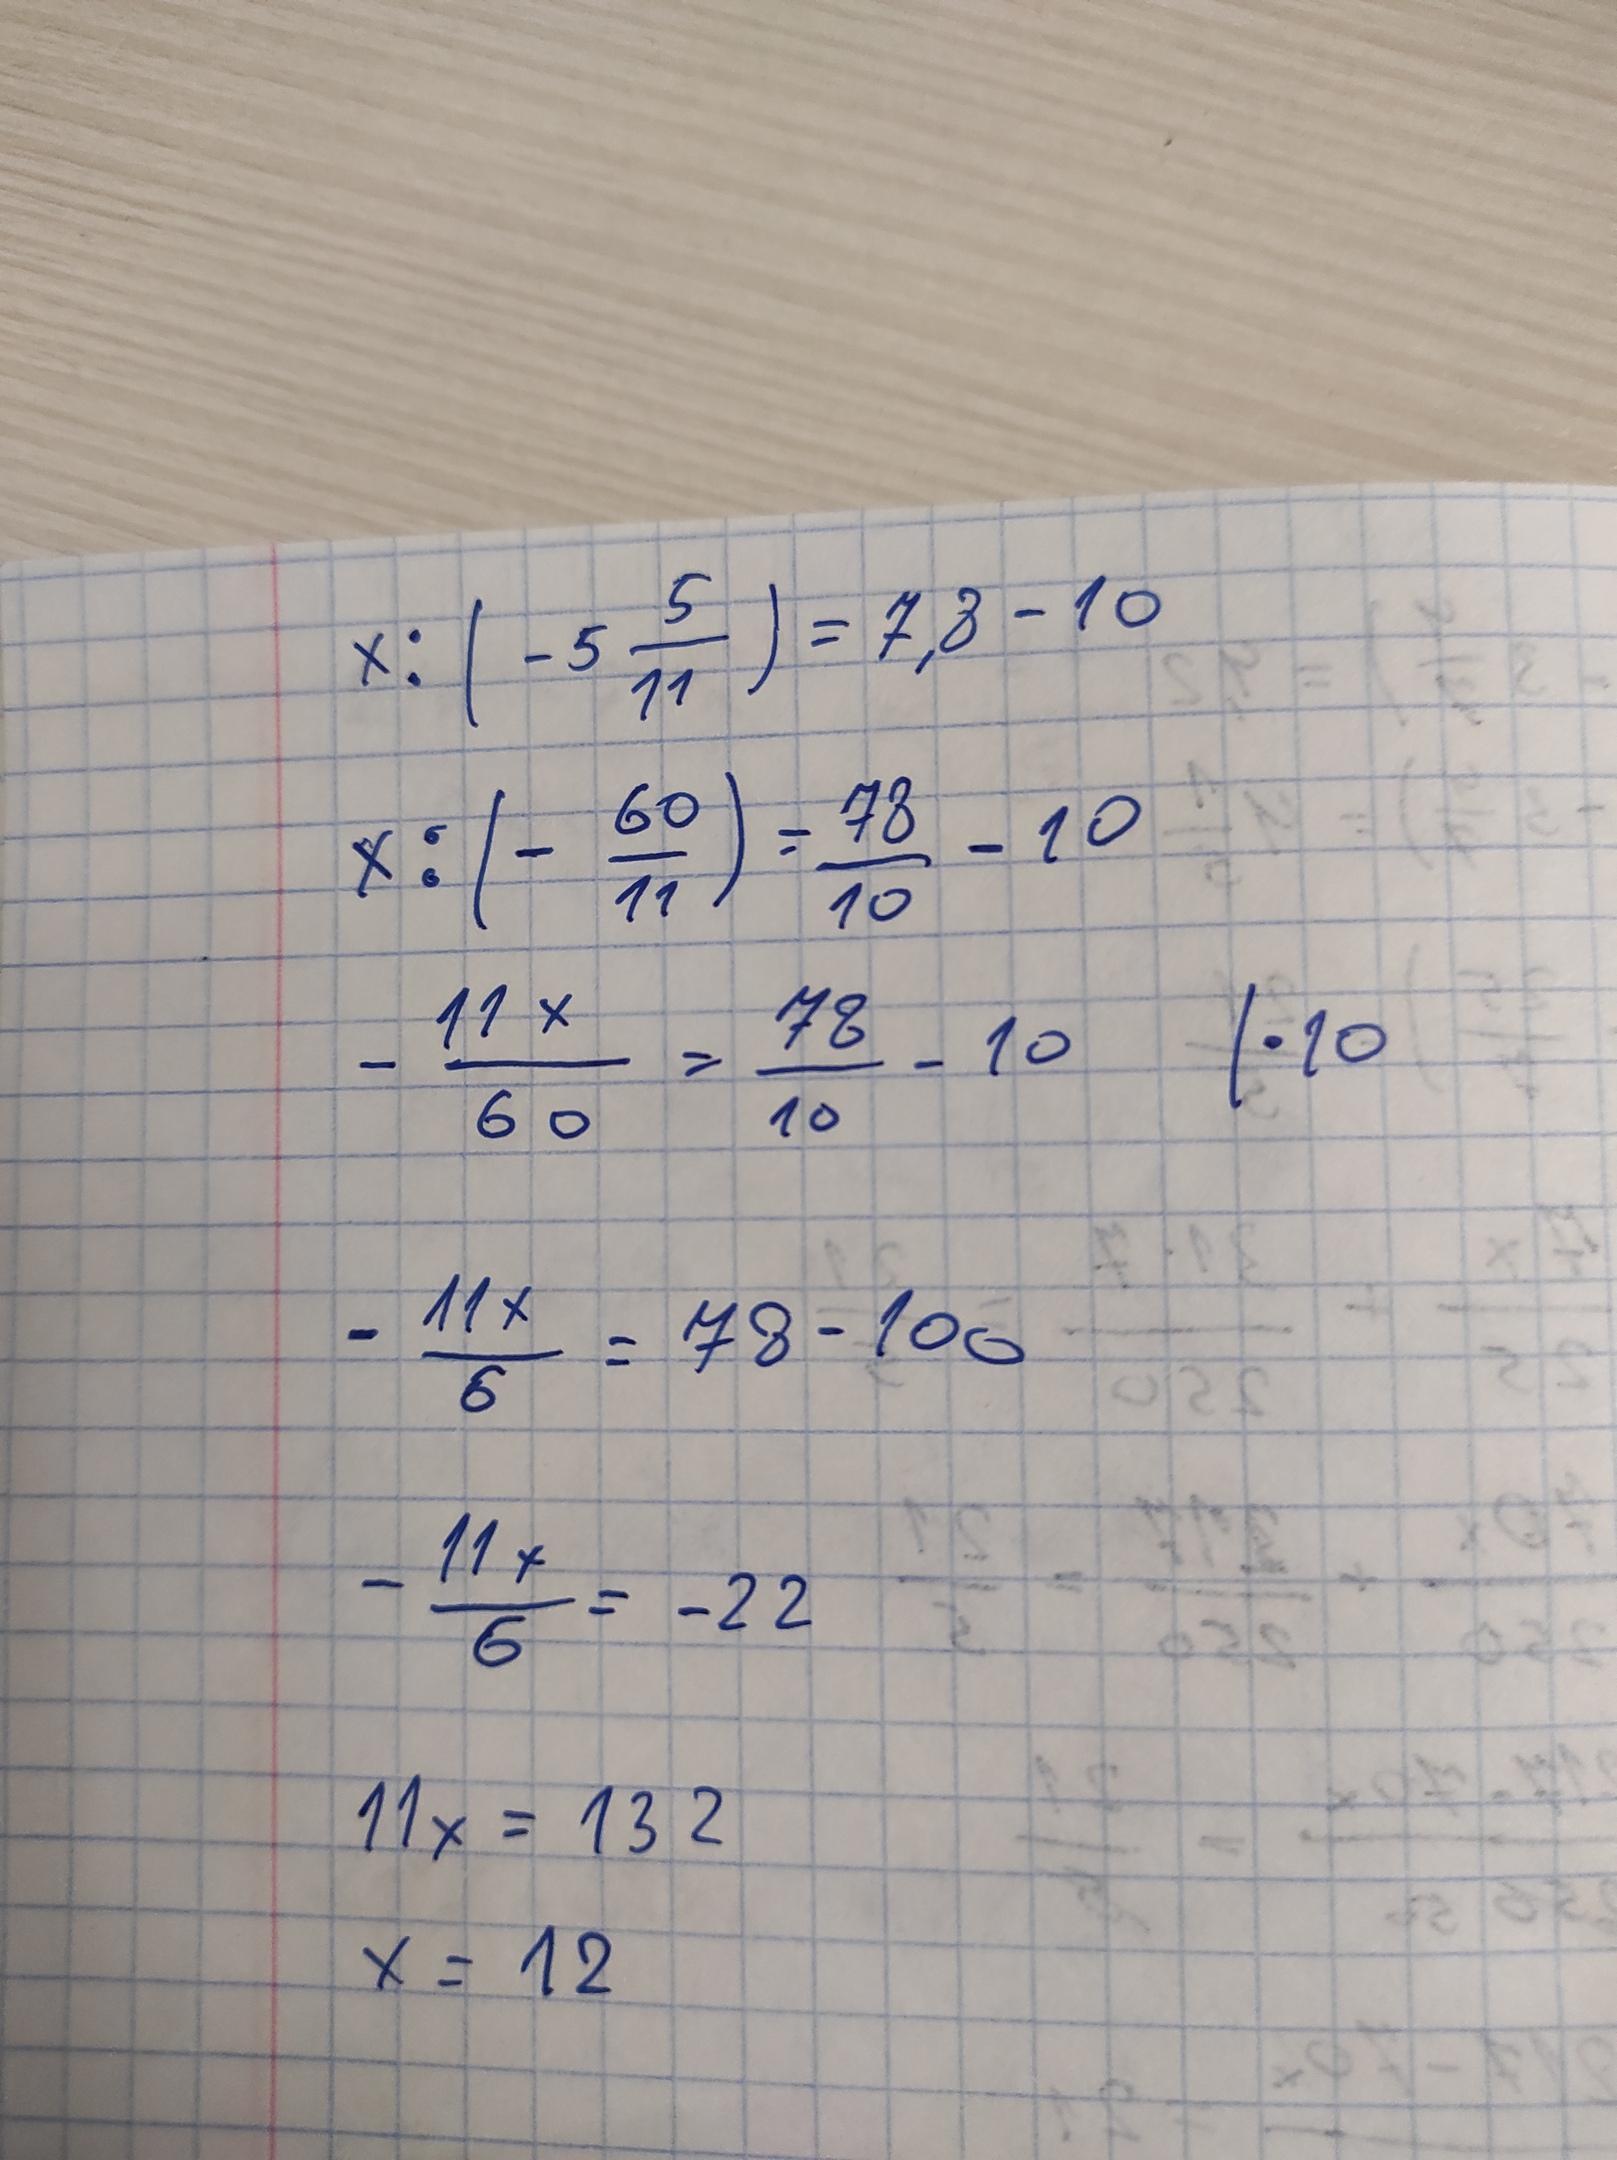 x : (-5 5/11) = 7,8 - 10
x : (- 60/11) = 78/10 - 10
- 11x/60 = 78/10 - 10 | · 10
- 11x/6 = 78 - 100
- 11x/6 = -22
11x = 132
x = 12